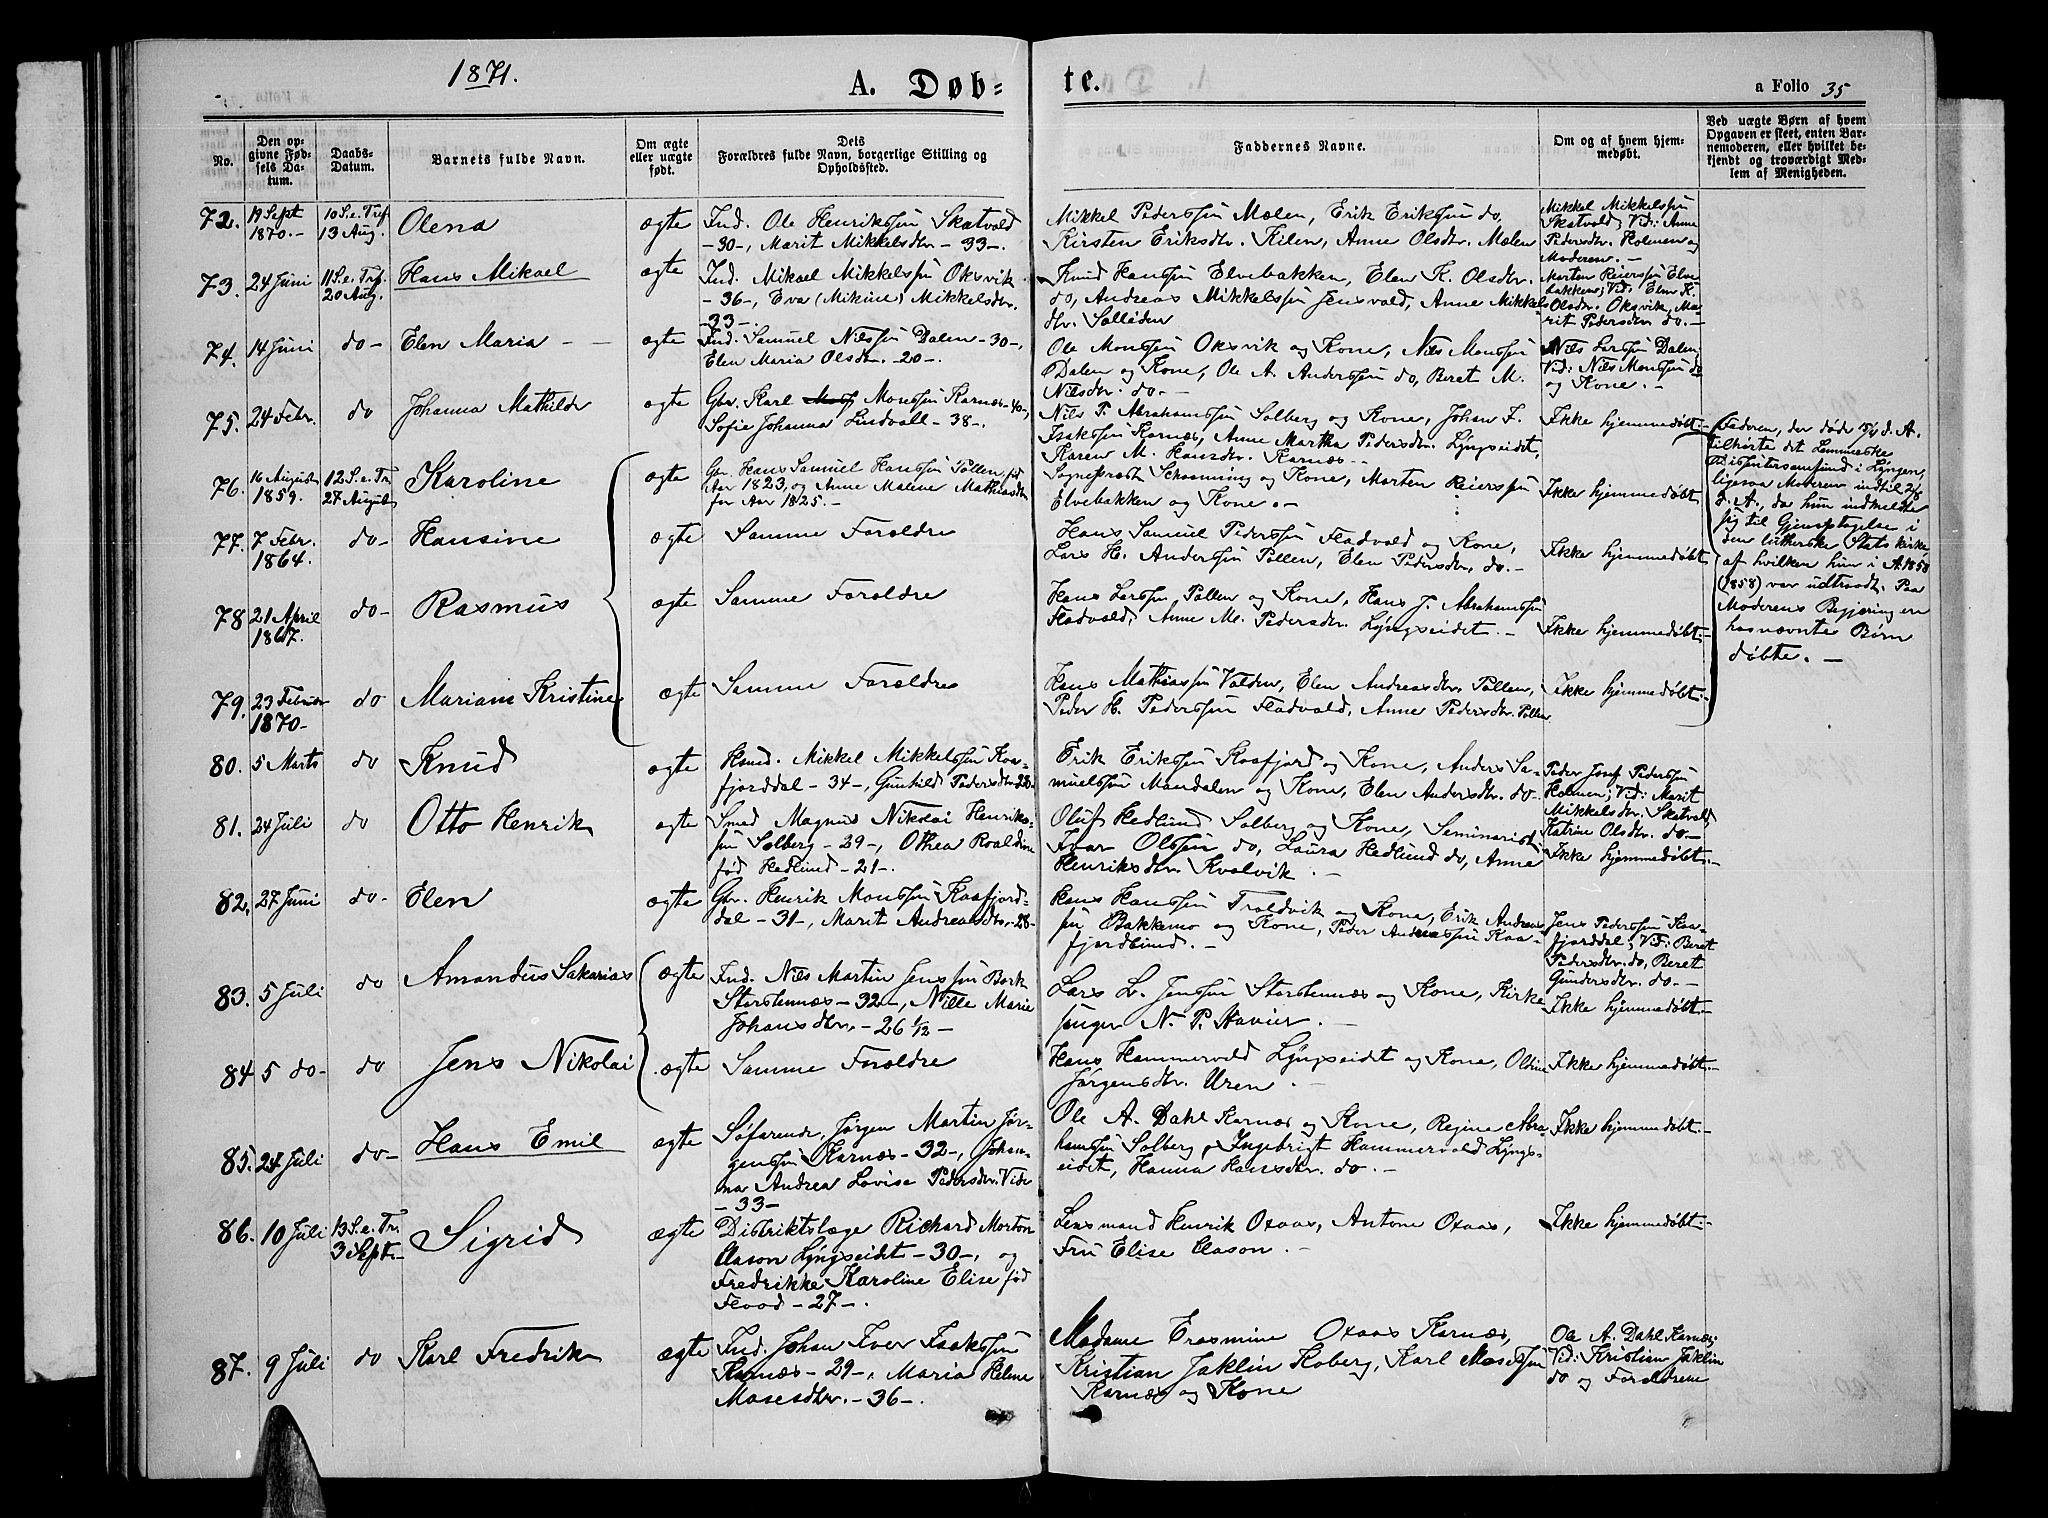 1871.
A. Døb=
te.
a Folio 35
No.
Den op-
givne Fød-
sels Da-
tum.
Daabs-
Datum.
Barnets fulde Navn.
Om ægte
eller uægte
født.
Dets
Forældres fulde Navn, borgerlige Stilling og
Opholdssted.
Faddernes Navne.
Om og af hvem hjem-
medøbt.
Ved uægte Børn af hvem
Opgaven er skeet, enten Bar-
nemoderen, eller hvilket be-
kjendt og troværdigt Med-
lem af Menigheden.
72.
19 Sept
1870.-
10 S. e. Tref
13 Aug.
Olena
ægte
Ind. Ole Henrikssøn Skatvold
-30-, Marit Mikkelsdtr. -33-.
Mikkel Pederssøn Mælen, Erik Erikssøn do,
Kirsten Eriksdtr. Kilen, Anne Olsdtr. Mælen
Mikkel Mikkelssøn
Skatvold; Vid: Anne
Pedersdtr. Holmen og
Moderen.-
73.
24 Juni
11 S. e. Tref.
20 Aug.
Hans Mikael
ægte
Ind. Mikael Mikkelssøn Oksvik
-36-, Eva (Mikine) Mikkelsdtr.
-33-.
Knud Hanssøn Elvebakken, Elen K. Olsdtr.
do, Andreas Mikkelssøn Jensvold, Anne Mikkels-
dtr. Solliden
Morten Reierssøn Elve
bakken; Vid: Elen K.
Olsdtr. Oksvik, Ma-
rit Pedersdtr. do.-
74.
14 Juni
do-
Elen Maria - -
ægte
Ind. Samuel Nilssøn Dalen -30-,
Elen Maria Olsdtr. -20-.
Ole Monssøn Oksvik og Kone, Nils Monssøn
Dalen og Kone, Ole A. Anderssøn do, Beret M.
Nilsdtr. do-
Nils Larssøn Dalen;
Vid: Nils Monssøn do
og Kone.-
75.
24 Febr.
do
Johanna Mathilde
ægte
Gbr. Karl Monssøn Karnæs -40-,
Sofie Johanna Lindvall -38-.
Nils P. Abrahamssøn Solberg og Kone, Johan I.
Isakssøn Karnæs, Anne Martha Pedersdtr. Lyngseidet,
Karen M. Hansdtr. Karnæs-
Ikke hjemmedøbt.-
76.
16 August
1859.
12 S. e. Tr.
27 August
Karoline
ægte
Gbr. Hans Samuel Hanssøn Pollen, fød
Aar 1823, og Anne Malene Mathiasdtr
før Aar 1825.-
Sogneprest Schønning og Kone, Morten Reierssøn
Elvebakken og Kone.-
Ikke hjemmedøbt
Faderen, der døde d. A.
tilhørte det Lemminske
Dissentersamfund i Lyngen,
ligesaa Moderen indtil
d. A., da hun indmeldte
sig til Gjenoptagelse i
den lutherske Statskirke,
af hvilken hun i A. 1858
(1858) var udtraadt. Paa
Moderens Begjæring ere
hosnævnte Børn
døbte.-
77.
7 Febr.
1864.
do-
Hansine
ægte
Samme Forældre
Hans Samuel Pederssøn Fladvold og Kone,
Lars H. Anderssøn Pollen, Elen Pedersdtr. do.-
Ikke hjemmedøbt
78
21 April
1867.
do-
Rasmus
ægte
Samme Forældre
Hans Larssøn Pollen og Kone, Hans J. Abrahamssøn
Fladvold, Anne M. Pedersdtr. Lyngseidet.-
Ikke hjemmedøbt.-
79.
23 Februar
1870-
do
Mariane Kristine
ægte
Samme Forældre
Hans Mathiassøn Volden, Elen Andreasdtr. Pollen,
Peder H. Pederssøn Fladvold, Anne Pedersdtr. Pollen
Ikke hjemmedøbt.-
80.
5 Marts
do
Knud
ægte
Husmd. Mikkel Mikkelssøn Kaa-
fjorddal -34-, Gunhild Pedersdtr -28-
Erik Erikssøn Kaafjord og Kone, Anders Sa-
muelssøn Mandalen og Kone, Elen Andersdtr. do.
Peder Josef Pederssøn
Holmen; Vid: Marit
Mikkelsdtr. Skatvold,
Katrine Olsdtr. do.-
81.
24 Juli
do
Otto Henrik
ægte
Smed Magnus Nikolai Henriks-
søn Solberg -29-, Othea Roaldine
fød Hedlund -21-.
Oluf Hedlund Solberg og Kone, Seminarist
Ivar Olssøn do, Laura Hedlund do, Anne
Henriksdtr. Kvalvik.-
Ikke hjemmedøbt.-
82.
27 Juni
do-
Elen
ægte
Gbr. Henrik Monssøn Kaafjord-
dal -31-, Marit Andreasdtr. -28-
Hans Hanssøn Troldvik og Kone, Erik Andreas
søn Bakkemo og Kone, Peder Andreassøn Kaa-
fjordbund.-
Jens Pederssøn Kaa-
fjorddal; Vid: Beret
Pedersdtr. do, Beret
Gundersdtr. do.-
83.
5 Juli
do
Amandus Sakarias
ægte
Ind. Nils Martin Jenssøn Bark
Storstennæs -32-, Nille Marie
Johansdtr. -26 1/12-
Lars L. Jenssøn Storstennæs og Kone, Kirke
sanger N. P. Havier.-
Ikke hjemmedøbt.-
84
5 do-
do
Jens Nikolai
ægte
Samme Forældre
Hans Hammervold Lyngseidet og Kone, Oldine
Jørgensdtr. Uren.-
Ikke hjemmedøbt.-
85.
24 Juli
do-
Hans Emil
ægte
Søfarende Jørgen Martin Jør-
genssøn Karnæs -32-, Johan-
na Andrea Lovise Pedersdtr. Vide
-33-
Ole A. Dahl Karnæs og Kone, Regine Abra-
hamssøn Solberg, Ingebrigt Hammervold Lyngs-
eidet, Hanna Hansdtr. do.-
Ikke hjemmedøbt.-
86.
10 Juli
13 S. e. Tr.
3 Sept.-
Sigrid
ægte
Distriktslæge Richard Morton
Aason Lyngseidet -30-, og
Fredrikke Karoline Elise fød
Flood -27-.
Lensmand Henrik Oxaas, Antone Oxaas,
Fru Elise Aason.-
Ikke hjemmedøbt.-
87.
9 Juli
do
Karl Fredrik
ægte
Ind. Johan Iver Isakssøn
Karnæs -29-, Maria Helene
Mosesdtr. -36-.
Madame Erasmine Oxaas Karnæs,
Kristian Jaklin Koberg, Karl Mosessøn
Karnæs og Kone
Ole A. Dahl Karnæs;
Vid: Kristian Jaklin
do og Forældrene